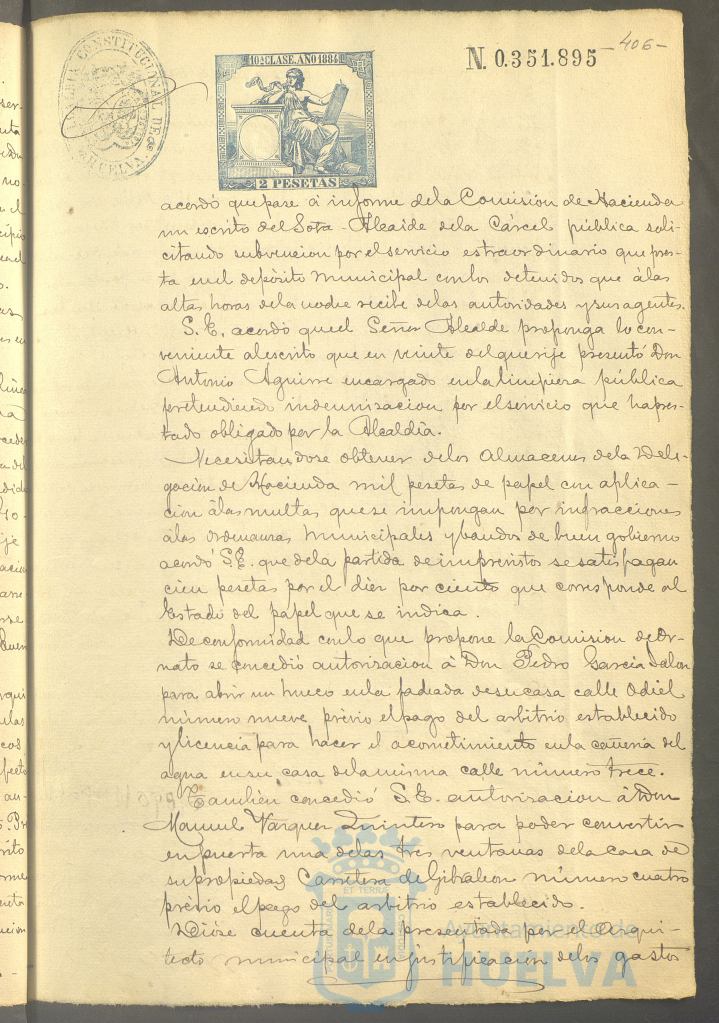 ALCALDIA CONSTITUCIONAL DE HUELVA
10ª CLASE. AÑO 1884
2 PESETAS
N. 0.351.895
-406-
acordó que pase á informe de la Comisión de Hacienda
un escrito del Sota-Alcaide de la Cárcel pública soli-
citando subvencion por el servicio estraordinario que pres-
ta en el depósito municipal con los detenidos que á las
altas horas de la noche recibe de las autoridades y sus agentes.
S.E. acordó que el Señor Alcalde proponga lo con-
veniente al escrito que en veinte del que rije presentó Don
Antonio Aguirre encargado en la limpiera pública
pretendiendo indemnizacion por el servicio que ha pres-
tado obligado por la Alcaldía.
Necesitandose obtener de los almacenes de la Dele-
gación de Hacienda mil pesetas de papel con aplica-
cion á las multas que se impongan por infracciones
á las ordenanzas municipales y bandos de buen gobierno
acordó S.E. que de la partida de imprevistos se satisfagan
cien pesetas por el diez por ciento que corresponde al
Estado del papel que se indica.
De conformidad con lo que propone la Comision de Or-
nato se concedió autorizacion á Don Pedro García Jalon
para abrir un hueco en la fachada de su casa calle Odiel
número nueve prévio el pago del arbitrio establecido
y licencia para hacer el acometimiento en la cañeria del
agua en su casa de la misma calle número trece.
También concedió S.E. autorizacion á Don
Manuel Vazquez Quintero para poder convertir
en puerta una de las tres ventanas de la casa de
su propiedad Carretera de Gibraleon número cuatro
prévio el pago del arbitrio establecido.
Dióse cuenta de la presentada por el Arqui-
tecto municipal en justificacion de los gastos
Ayuntamiento de
HUELVA